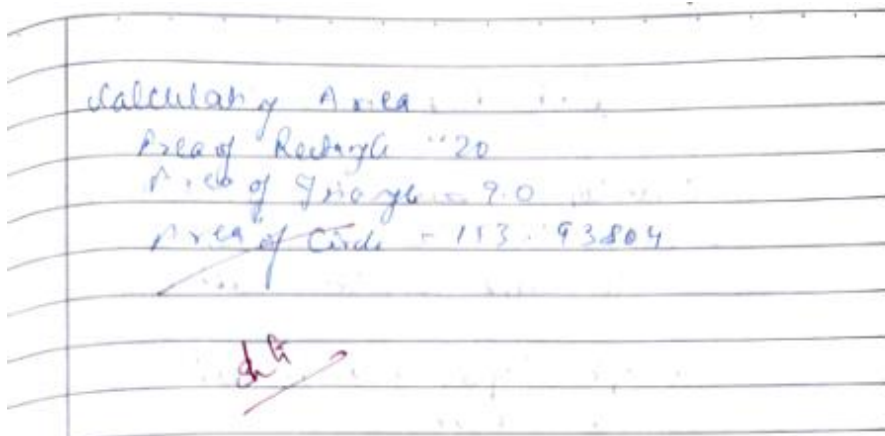 Calculating Area
Area of Rectangle = 20
Area of Triangle = 9.0
Area of Circle = 113.93804